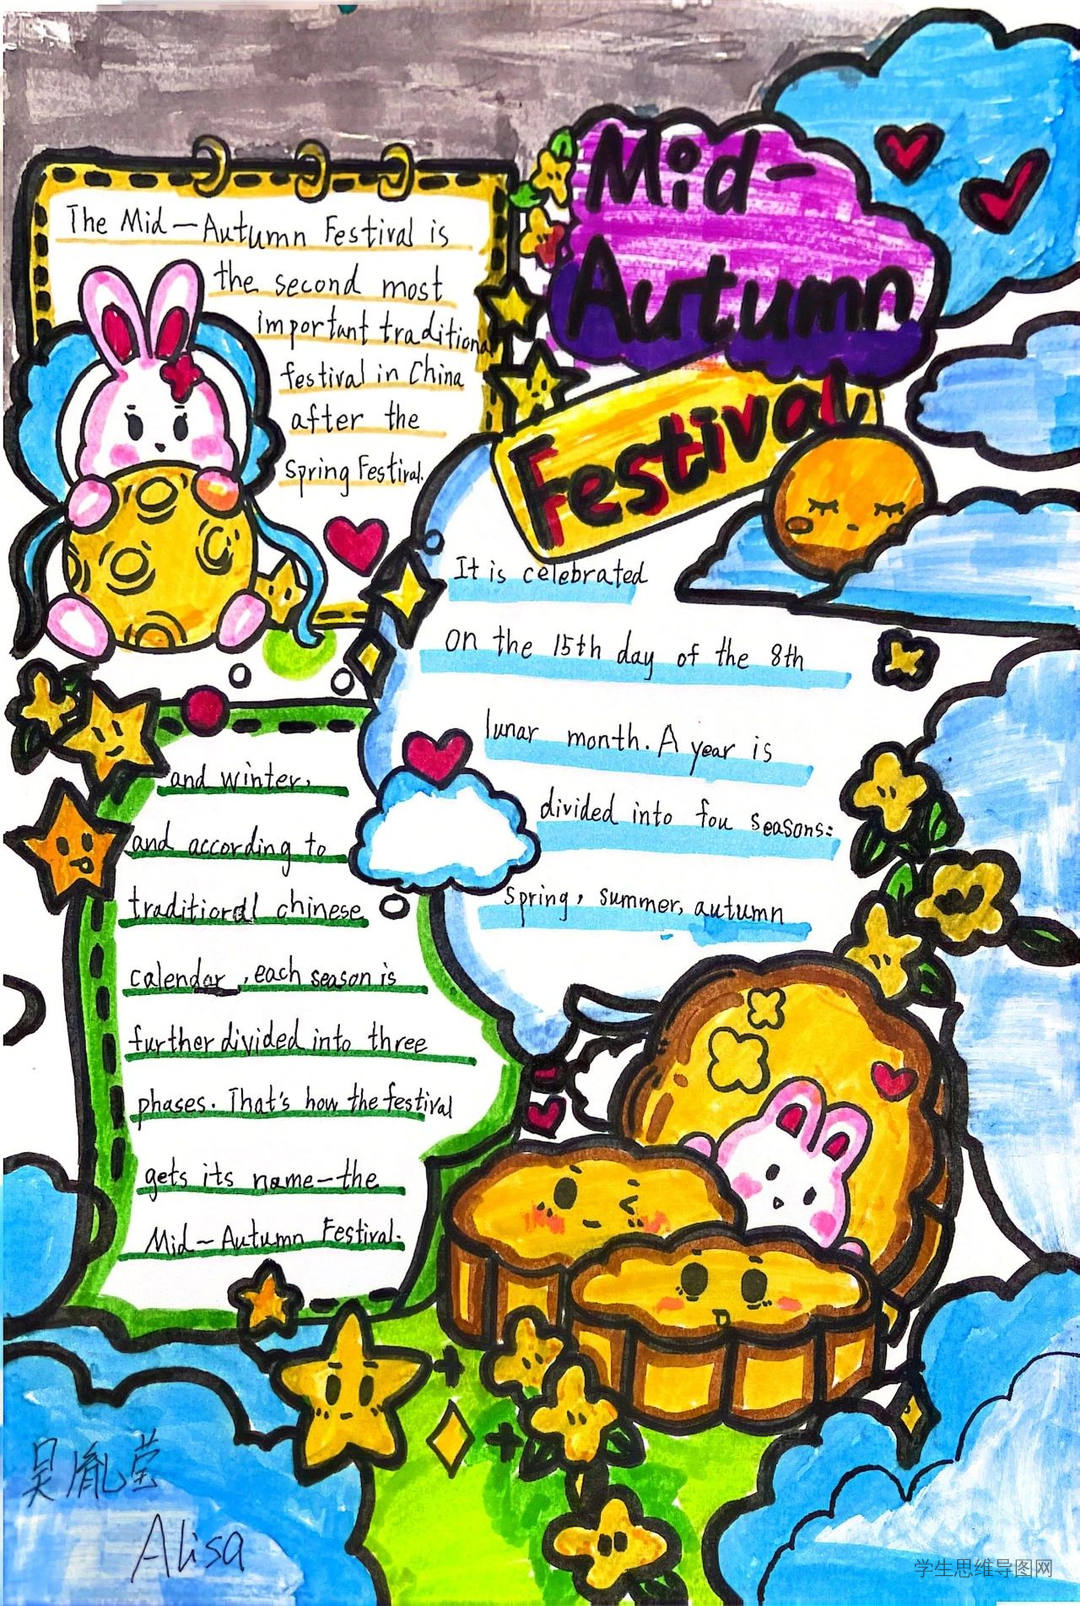 Mid-
Autumn
Festival
The Mid-Autumn Festival is
the second most
important traditional
festival in China
after the
Spring Festival.
It is celebrated
on the 15th day of the 8th
lunar month. A year is
divided into fou seasons:
spring, summer, autumn
and winter,
and according to
traditioral chinese
calendar, each season is
further divided into three
phases. That's how the festival
gets its name-the
Mid-Autumn Festival.
吴胤莹
Alisa
学生思维导图网